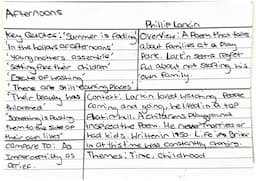 Afternoons
Phillip Larkin
Key Quotes: "Summer is fading"
"In the hollows of afternoons"
"Young mothers assemble"
"Setting free their children"
"Estate of washing"
"There are still courting places"
"Their beauty has thickened"
"Something is pushing
them to the side of
their own lives"
compare to: As
Imperceptibly as
Grief.
Overview: A Poem that talks
about families at a Play
Park. Larkin seems regret
ful about not starting his
own family.
Context: Larkin loved watching People
coming and going, he lived in a top
flat in hull. A childrens Playground
inspired the Poem. He never married or
had kids. Written in 1959. Life in Brita
in at this time was constantly changing.
Themes: Time, Childhood